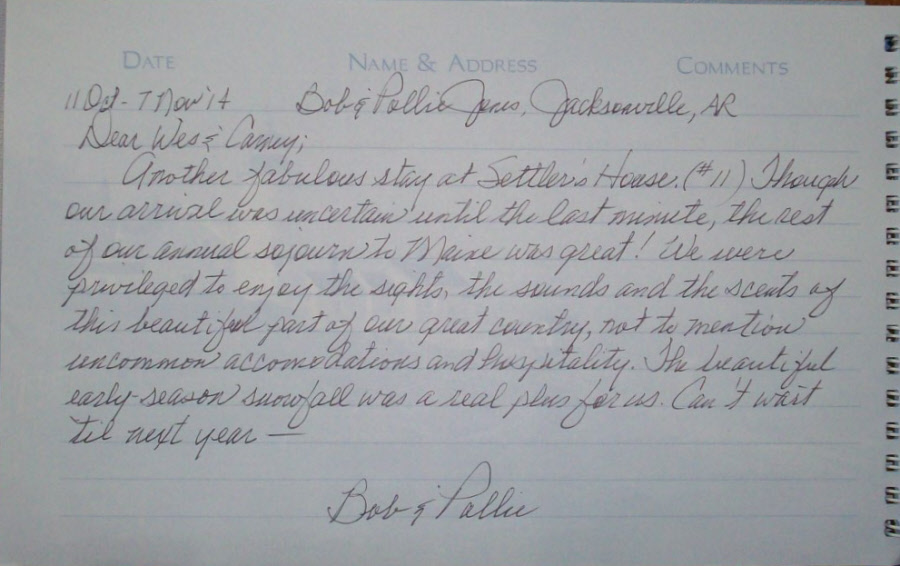 DATE NAME & ADDRESS COMMENTS
11 Oct - 7 Nov '14 Bob & Pollie Jones, Jacksonville, AR
Dear Wes & Camey;
Another fabulous stay at Settler's House. (#11) Though
our arrival was uncertain until the last minute, the rest
of our annual sojourn to Maine was great! We were
privileged to enjoy the sights, the sounds and the scents of
this beautiful part of our great country, not to mention
uncommon accomodations and hospitality. The beautiful
early-season snowfall was a real plus for us. Can't wait
'til next year —
Bob & Pollie